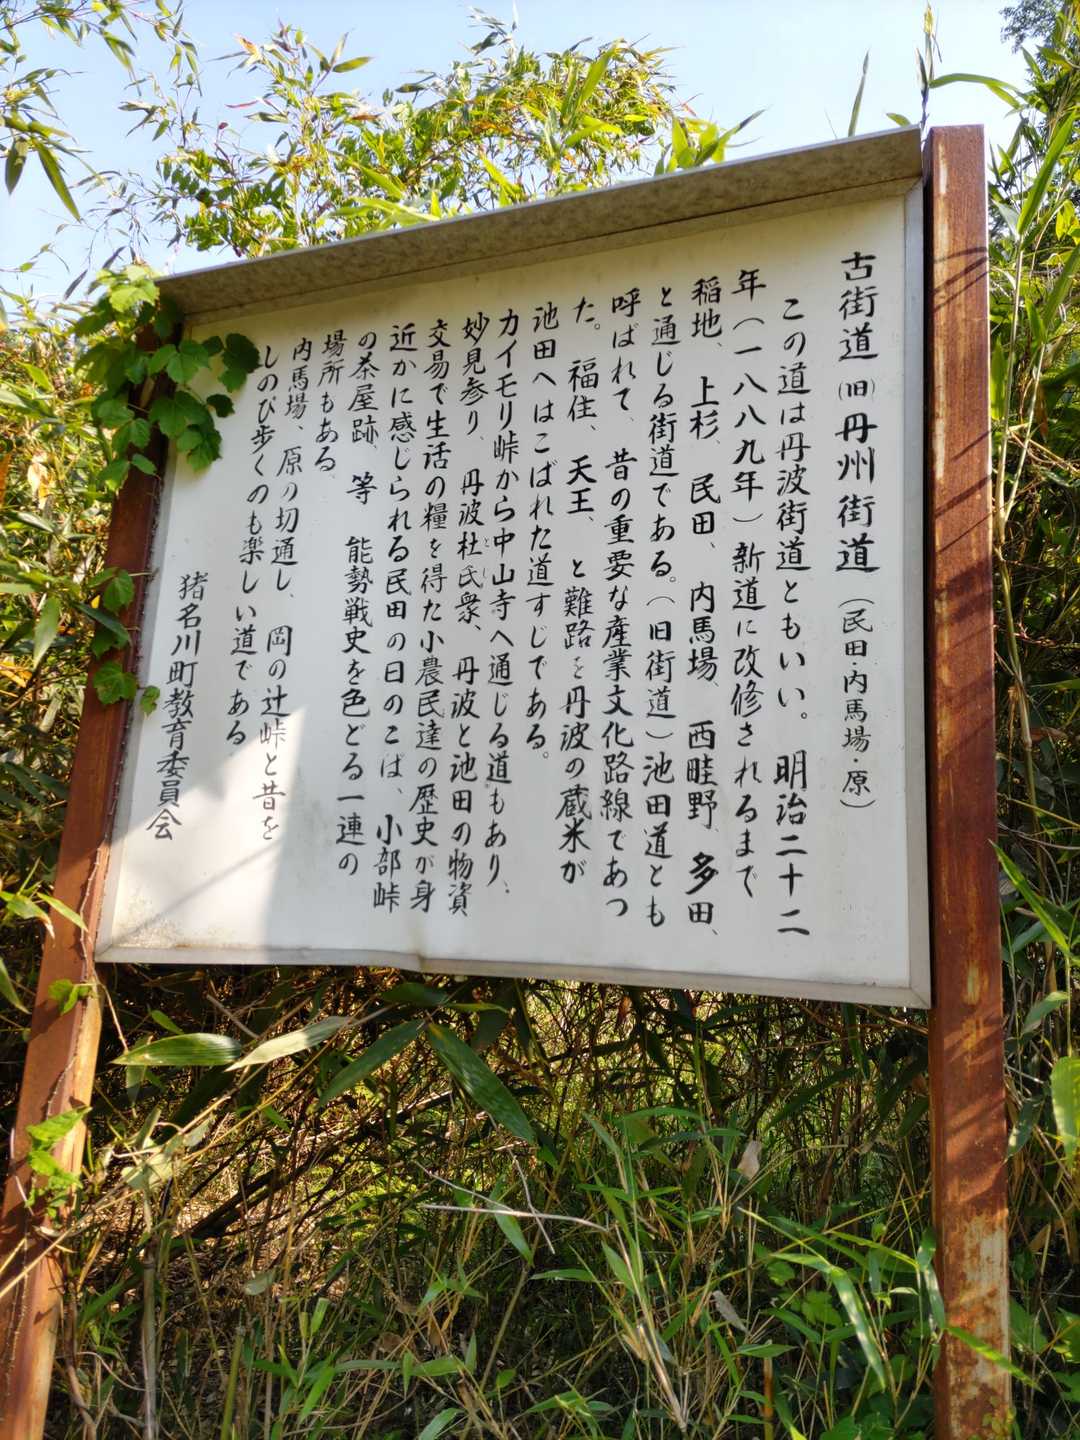 古街道(旧)丹州街道(民田・内馬場・原)
この道は丹波街道ともいい。明治二十二
年(一八八九年)新道に改修されるまで
稲地、上杉、民田、内馬場、西畦野、多田、
と通じる街道である。(旧街道)池田道とも
呼ばれて、昔の重要な産業文化路線であつ
た。福住、天王、と難路を丹波の蔵米が
池田へはこばれた道すじである。
カイモリ峠から中山寺へ通じる道もあり、
妙見参り、丹波杜氏衆、丹波と池田の物資
交易で生活の糧を得た小農民達の歴史が身
近かに感じられる民田の日のこば、小部峠
の茶屋跡、等 能勢戦史を色どる一連の
場所もある
内馬場、原の切通し、岡の辻峠と昔を
しのび歩くのも楽しい道である
猪名川町教育委員会